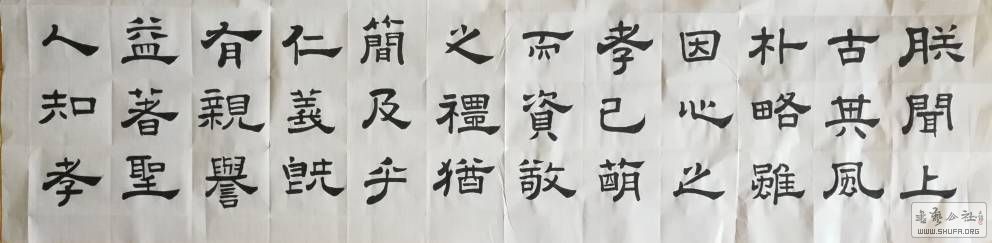 朕聞上
古其風
朴略雖
因心之
孝已萌
而資敬
之禮猶
簡及乎
仁義既
有親譽
益著聖
人知孝
书艺公社
WWW.SHUFA.ORG